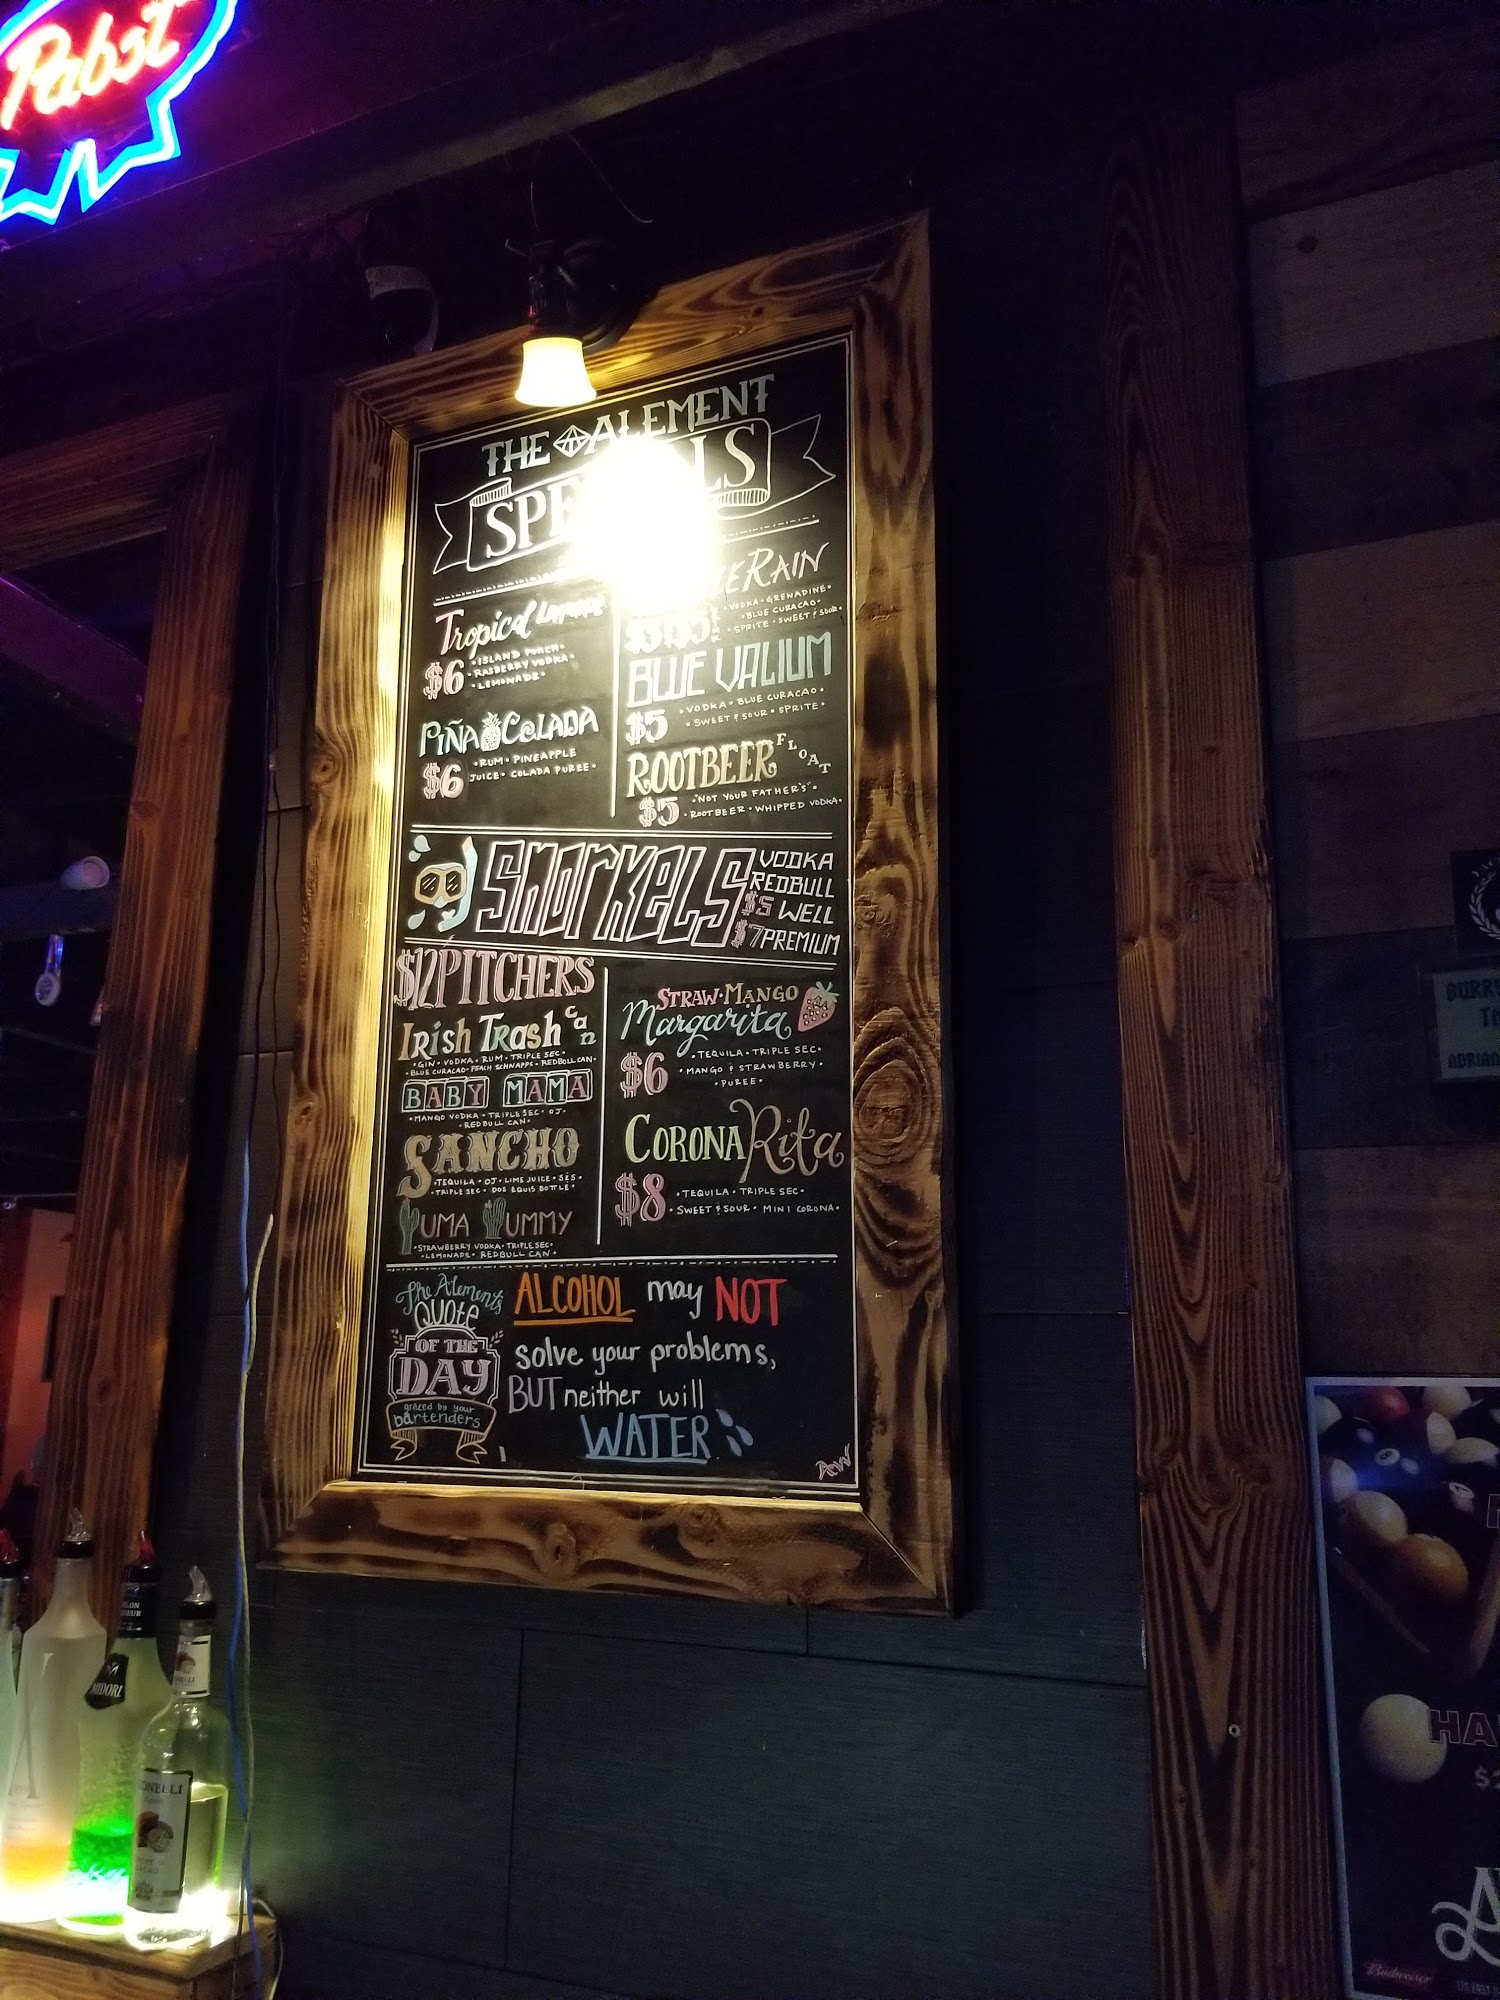 Pabst
THE ALEMENT
Tropical
$6
• ISLAND PUNCH •
• RASBERRY VODKA •
• LEMONADE •
PIÑA COLADA
$6
• RUM • PINEAPPLE
JUICE • COLADA PUREE •
RAIN
• VODKA • GRENADINE •
• BLUE CURACAO •
• SPRITE • SWEET & SOUR •
BLUE VALIUM
$5
• VODKA • BLUE CURACAO •
• SWEET & SOUR • SPRITE •
ROOTBEER FLOAT
$5
• "NOT YOUR FATHER'S" •
• ROOTBEER • WHIPPED VODKA •
SNORKELS
VODKA
REDBULL
$5 WELL
$7 PREMIUM
$12 PITCHERS
IRISH TRASH Can
• GIN • VODKA • RUM • TRIPLE SEC •
• BLUE CURACAO • PEACH SCHNAPPS • REDBULL CAN •
BABY MAMA
• MANGO VODKA • TRIPLE SEC • OJ •
• RED BULL CAN •
SANCHO
• TEQUILA • OJ • LIME JUICE • S&S •
• TRIPLE SEC • DOS EQUIS BOTTLE •
YUMA YUMMY
• STRAWBERRY VODKA • TRIPLE SEC •
• LEMONADE • REDBULL CAN •
STRAW • MANGO
Margarita
$6
• TEQUILA • TRIPLE SEC •
• MANGO & STRAWBERRY •
• PUREE •
CORONA Rita
$8
• TEQUILA • TRIPLE SEC •
• SWEET & SOUR • MINI CORONA •
The Alement's
QUOTE
OF THE
DAY
graced by your
bartenders
ALCOHOL may NOT
solve your problems,
BUT neither will
WATER
AW
MIDORI
Budweiser